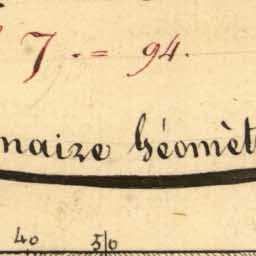 7 . = 94.
naire Géomèt
40 50